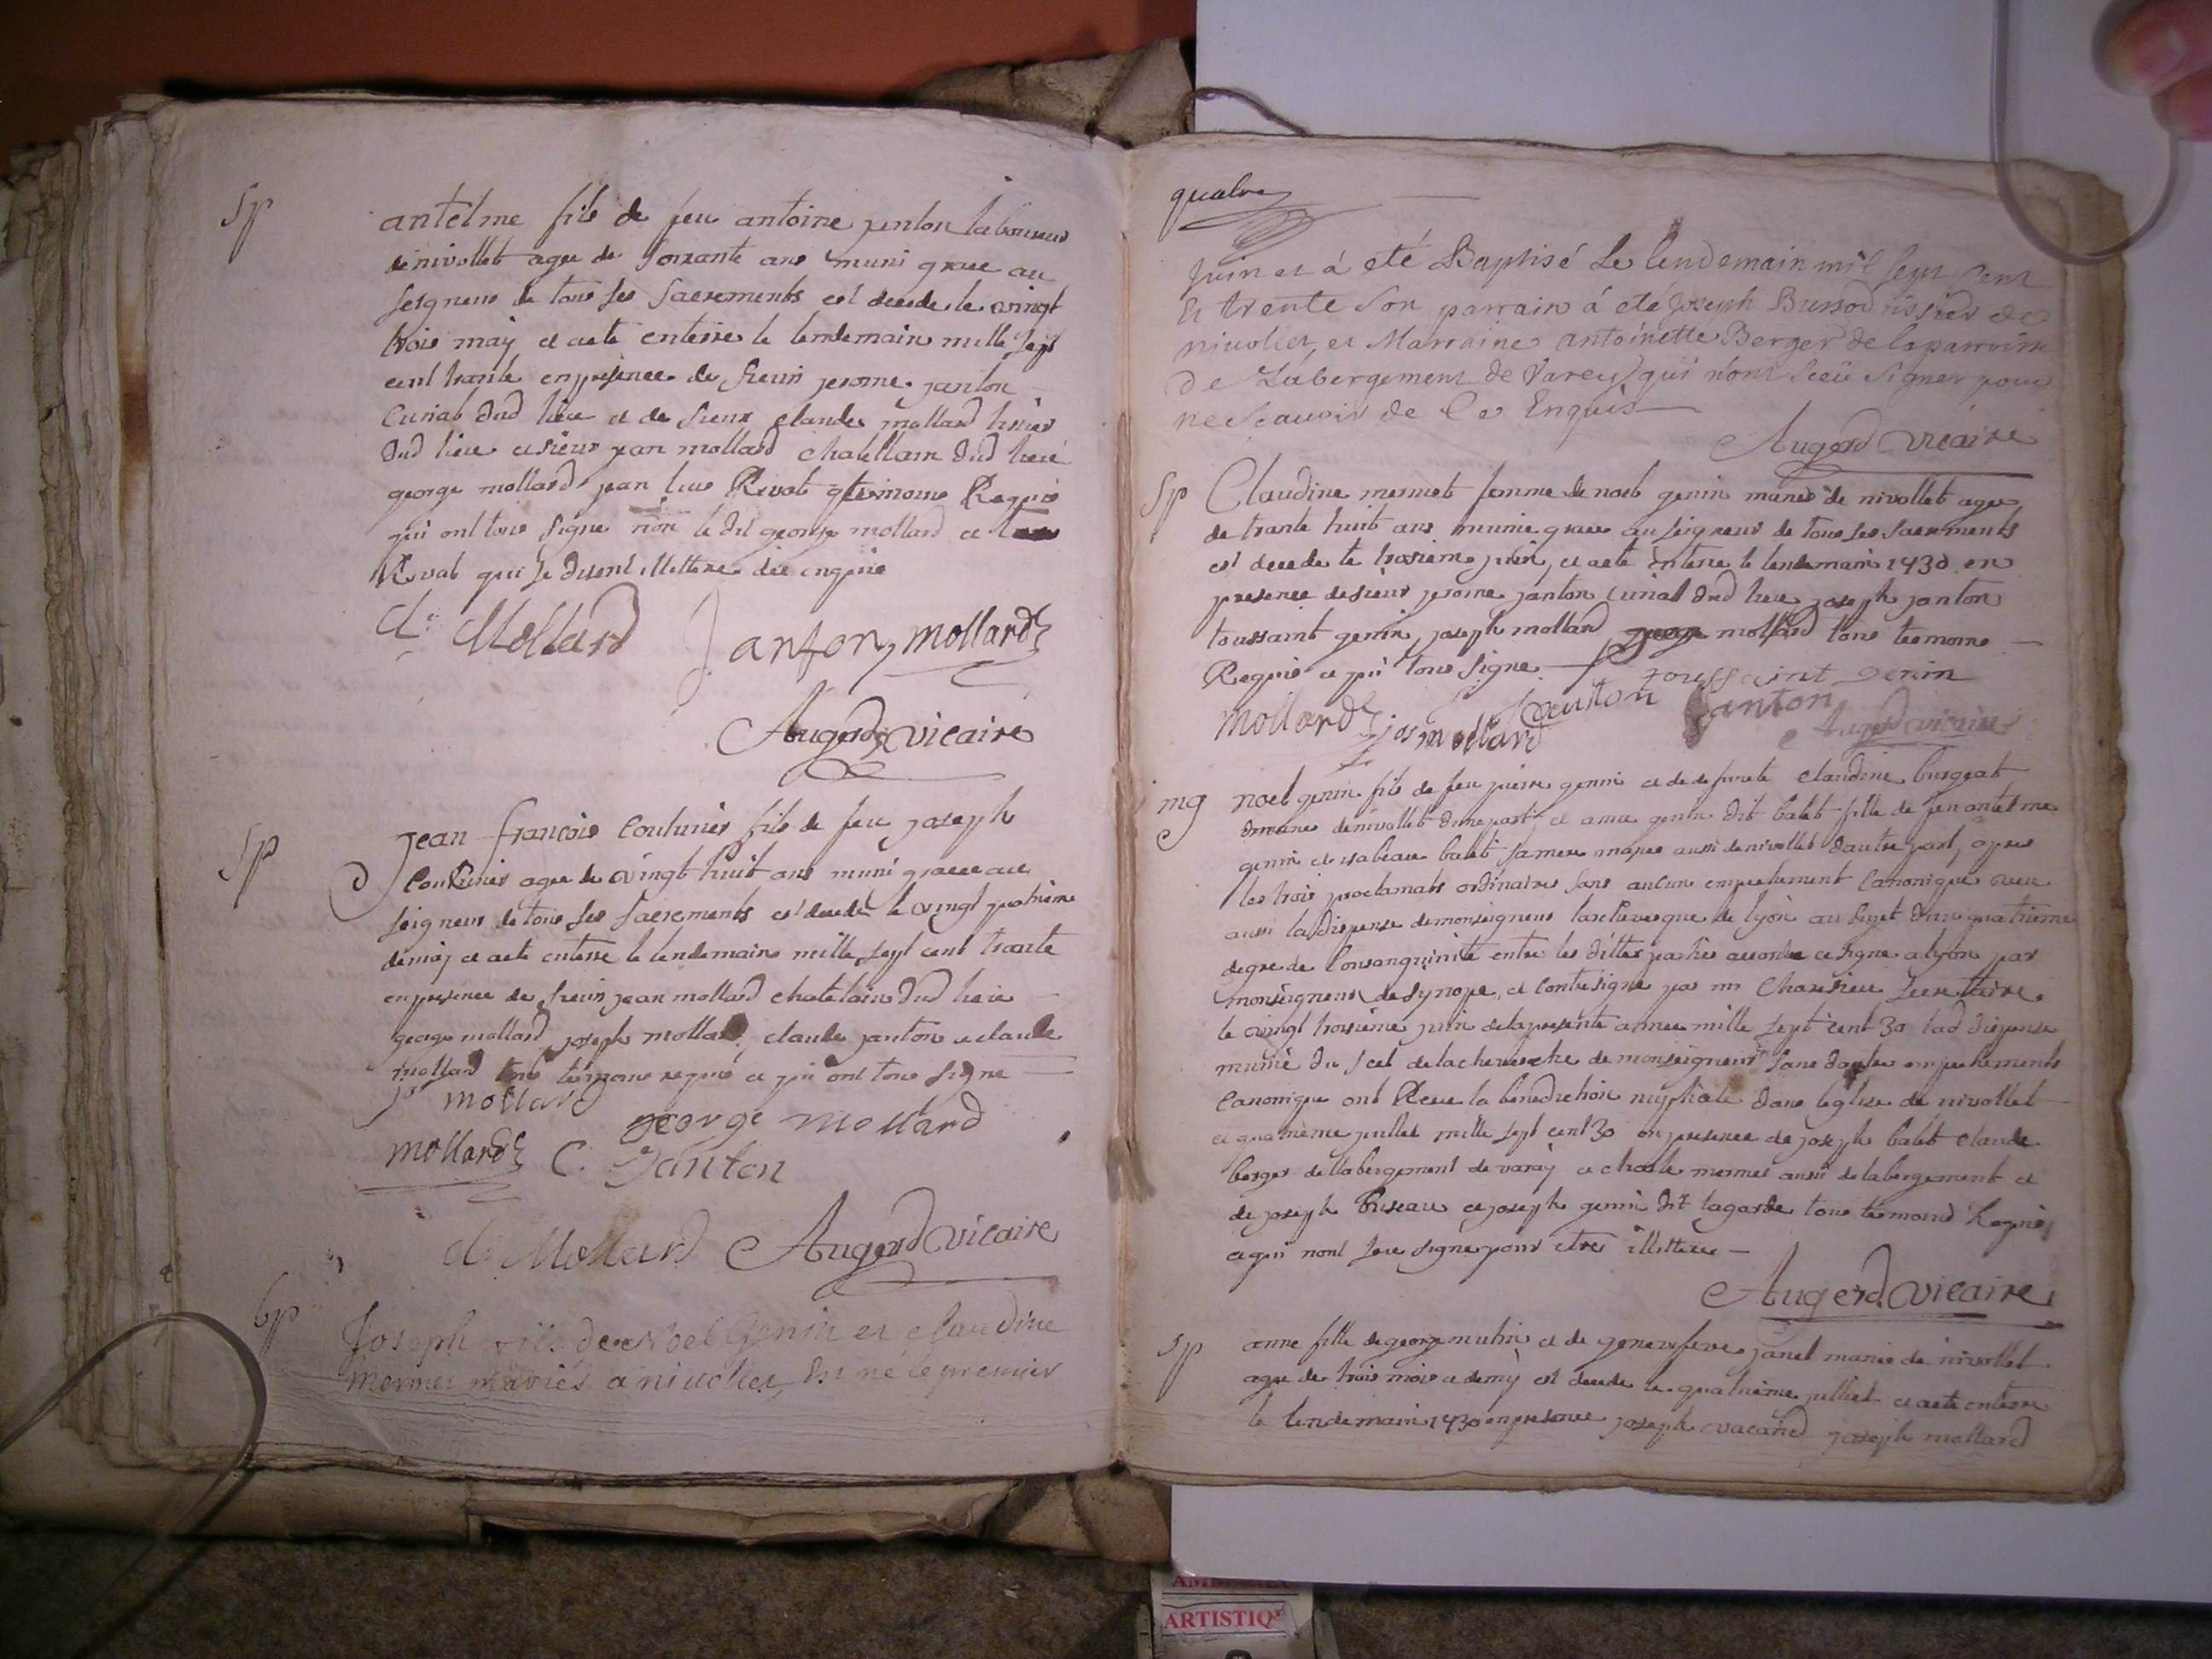 Sp
antelme fils de feu antoine janton laboureur
de nivollet agee de soixante ans muni grace au
seigneur de tous ses sacrements est decede le vingt
trois maÿ et aete enterre le lendemain mille sept
cent trante en presence de sieur jerome janton
curial dud lieu et de sieur claude mollard
dud lieu et sieur jean mollard chatellain dud lieu
george mollard jean Ruvat Requis
qui ont tous signe non le dit george mollard et
Ruvat qui se disent illettere de ce enquis
Cl. Mollard J anton mollard
Augerd vicaire
Sp
jean francois couturier fils de feu joseph
couturier agee de vingt huit ans muni grace au
seigneur de tous ses sacrements est decede le vingt quatrieme
de maÿ et aete enterre le lendemain mille sept cent trante
en presence de sieur jean mollard chatelain dud lieu
george mollard joseph mollard claude janton et claude
mollard tous temoins requis et qui ont tous signe
jos mollard
george mollard
mollard C. Janton
cl. Mollard Augerd vicaire
bp
Joseph fils de Noel Genin et claudine
mermet mariés a nivollet, est né le premier
quatre
Juin et á eté Baptisé Le lendemain mil sept cent
Et trente son parrain á eté Joseph Bussod de
nivollet, et Marraine antoinette Berger de la parroisse
de Labergement de Varey qui n'ont sceü signer pour
ne scauoir de Ce Enquis
Augerd vicaire
Sp
Claudine mermet femme de noel genin maries de nivollet agee
de trante huit ans munie grace au seigneur de tous ses sacrements
est decede le troisieme juin, et aete enterre le lendemain 1730 en
presence de sieur jerome janton curial dud lieu joseph janton
toussaint genin, joseph mollard george mollard tous temoins
Requis et qui tous signe toussaint genin
mollard jos mollard Janton Janton
Augerd vicaire
mg
noel genin fils de feu pierre genin et de defunte claudine burgeat
de nivollet dune part, et anne genin dit balet fille de feu antelme
genin et isabeau balet sa mere maries aussi de nivollet dautre part, apres
les trois proclamats ordinaires sans aucun empechement canonique veu
aussi la dispense de monseigneur larchevesque de lyon au sujet dun quatrieme
degre de consanguinité entre les dittes parties accordee et signe a lyon par
monseigneur de synope, et contresigne par mr secretaire
le vingt troisieme juin de la presente annee mille sept cent 30 lad dispense
munie du scel de monseigneur sans dautre empechements
canonique ont Receu la benediction nuptiale dans leglise de nivollet
le quatrieme juillet mille sept cent 30 en presence de joseph balet claude
berger de labergement de varaÿ et charle mermet aussi de labergement et
de joseph et joseph genin dit lagarde tous temoins Requis
et qui nont sceu signer pour etre illettere
Augerd vicaire
Sp
anne fille de george mutin et de genevefieve janel maries de nivollet
agee de trois mois et demÿ est decede le quatrieme juillet et aete enterre
le lendemain 1730 en presence joseph vacand joseph mollard
ARTISTIQ